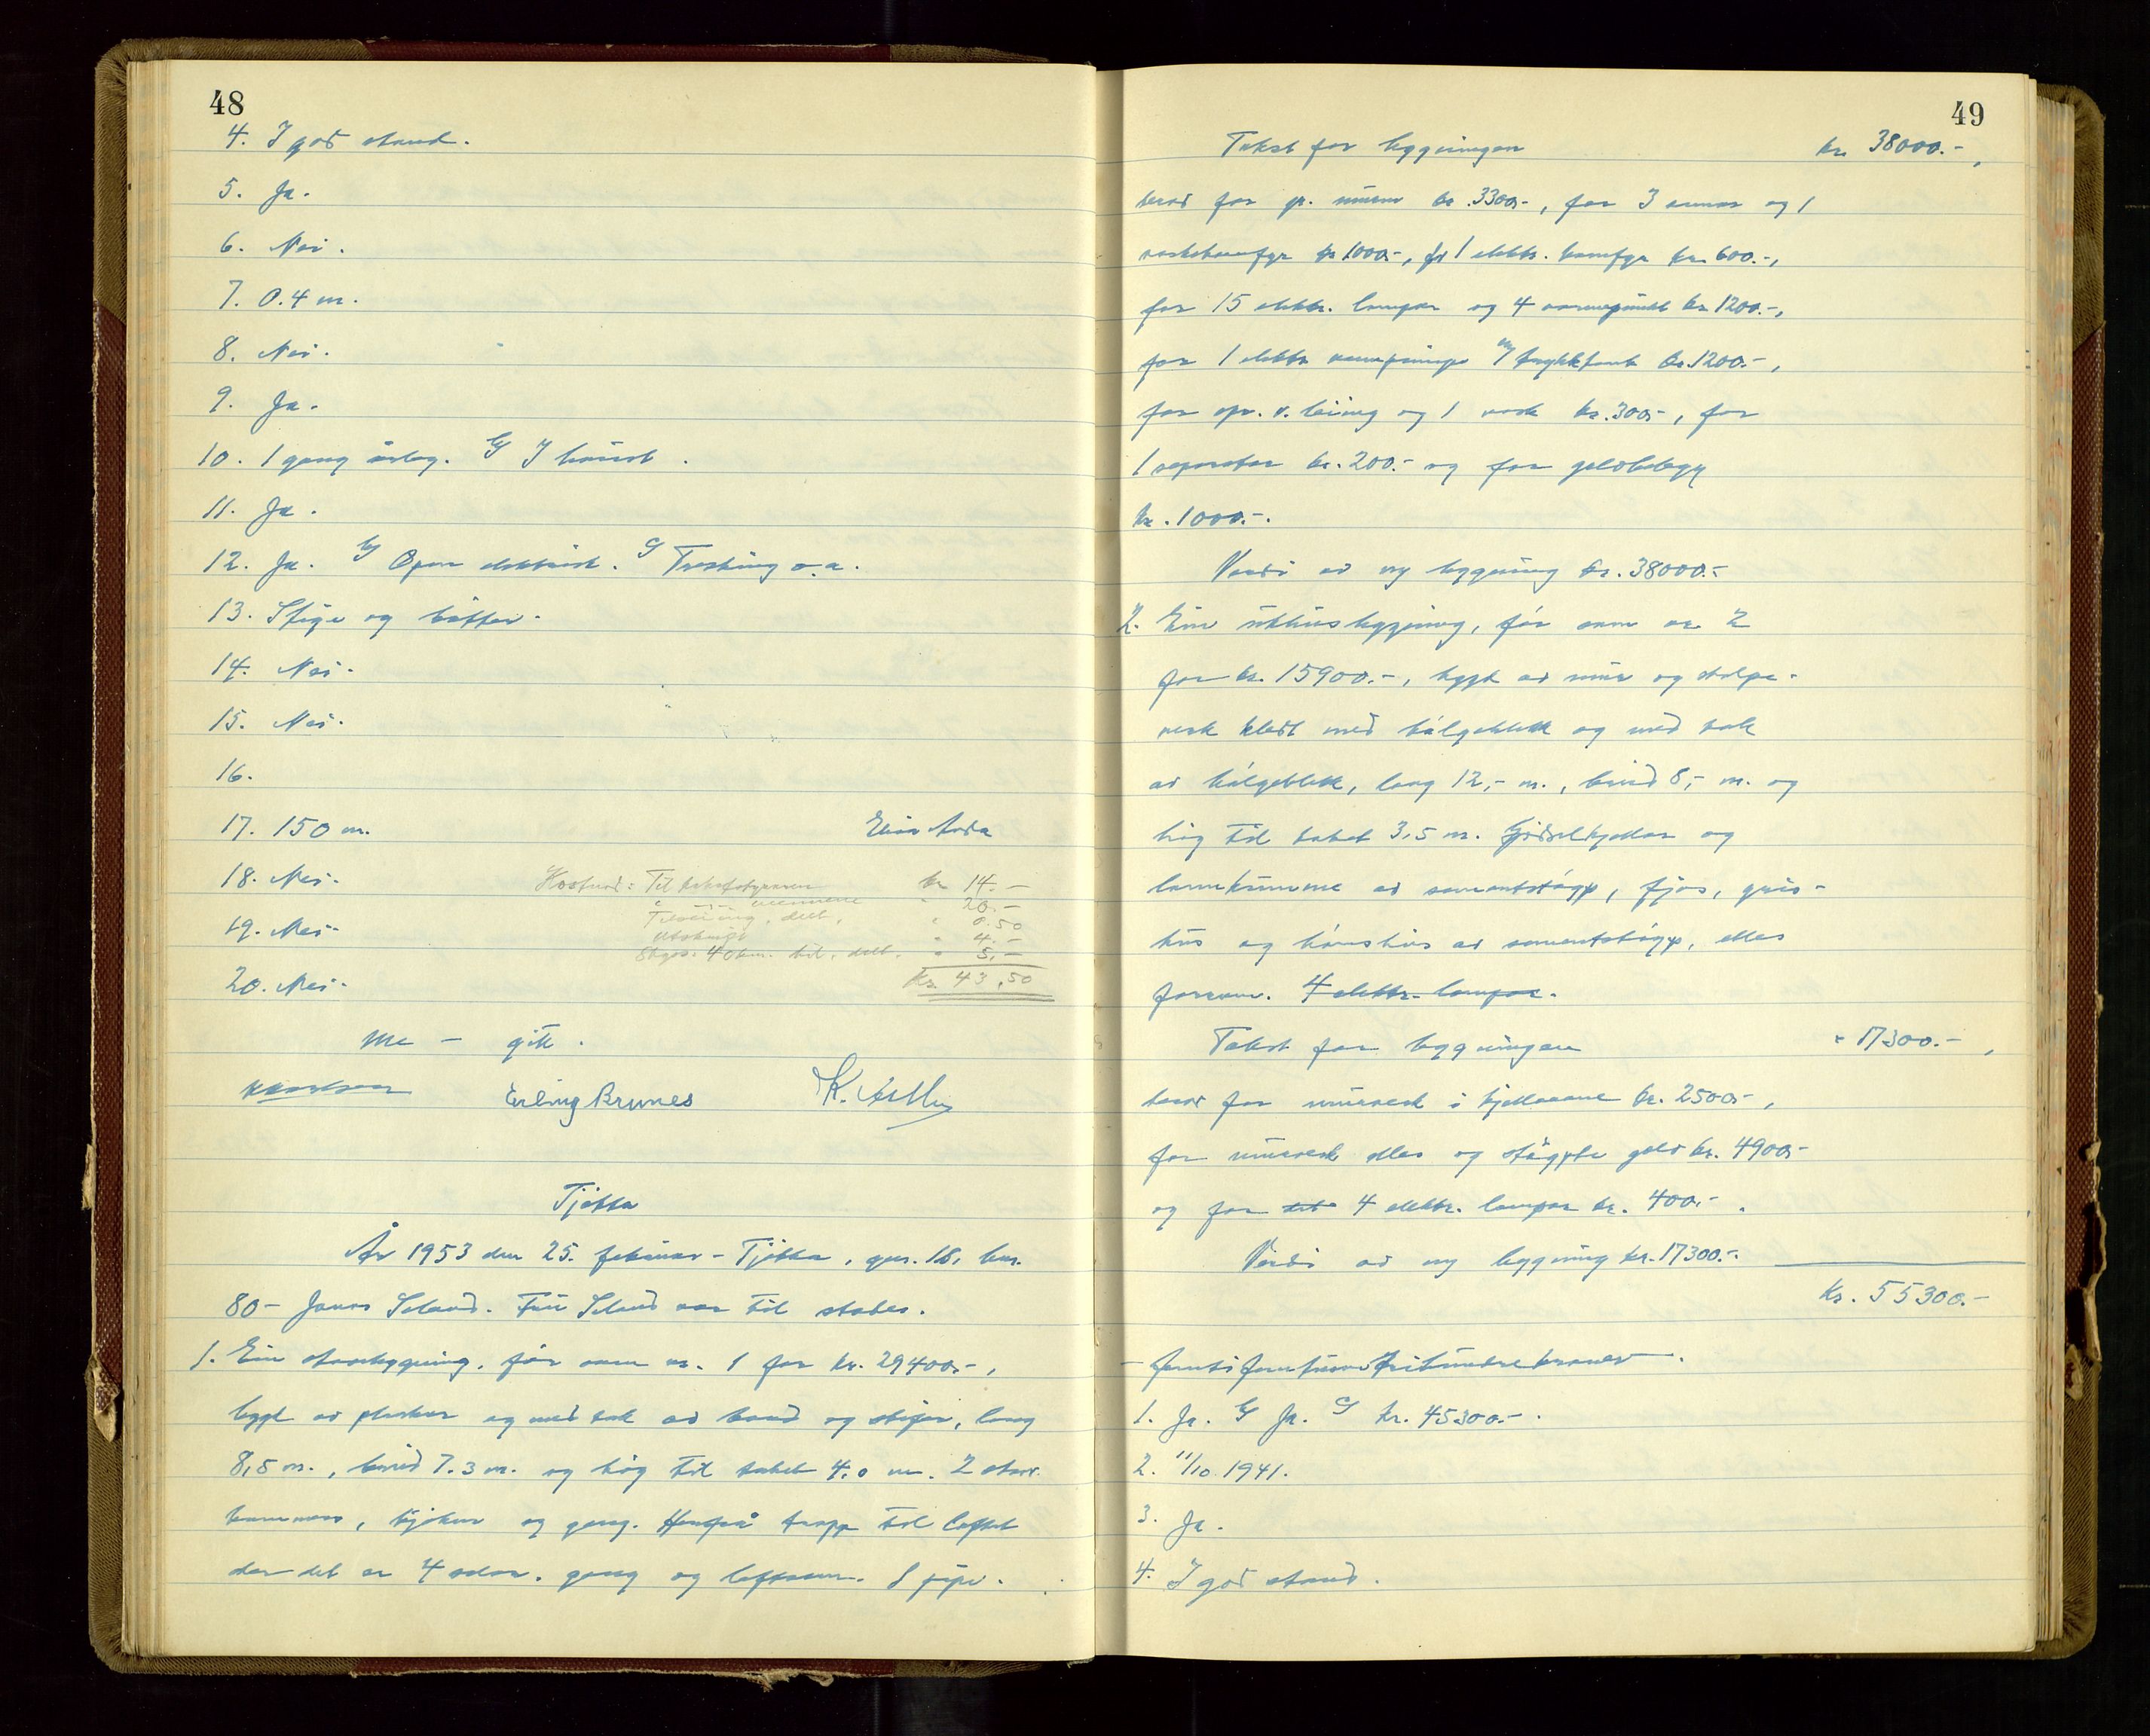 48
4. I god stand.
5. Ja.
6. Nei.
7. 0.4 m.
8. Nei.
9. Ja.
10. 1 gang årleg. b/ I haust.
11. Ja.
12. Ja. b/ Open elektrisk. c/ Tresking o.a.
13. Stige og bøtter.
14. Nei.
15. Nei.
16.
17. 150 m.
18. Nei.
19. Nei.
20. Nei.
Kostnad: Til takststyraren kr 14.-
" -"- mennene " 20.-
Tilseiing, delt, " 0.50
Utskrift " 4.-
Skyss: 40 km. bil, delt. " 5.-
Kr. 43,50
Me - gitt.
Erling Brunes
Tjøtta
År 1953 den 25. februar - Tjøtta, gnr. 18, bnr.
80 - Jonas Seland. Fru Seland var til stades.
1. Ein stovebygning, før som nr. 1 for kr. 29400.-,
bygt av plankar og med tak av bord og skifer, lang
8,5 m., breid 7.3 m. og høg til taket 4,0 m. 2 stover
kammers, kjøken og gang. Herfrå trapp til loftet
der det er 4 sover. gang og loftsrom. 1 pipe.
49
Takst for bygningen kr. 38000.-,
herav for gr. muren kr. 3300.-, for 3 omnar og 1
vaskekomfyr kr 1000.-, for 1 elektr. komfyr kr. 600.-,
for 15 elektr. lampar og 4 varmepunkt kr 1200.-,
for 1 elektr vasspumpe m/ trykktank kr. 1200.-,
for opv. v. leiing og 1 vask kr. 300.-, for
1 separator kr. 200.- og for golvbelegg
kr. 1000.-.
Verdi av ny bygning kr. 38000.-
2. Ein uthusbygning, før som nr. 2
for kr. 15900.-, bygt av mur og stolpe-
verk kledt med bølgeblekk og med tak
av bølgeblekk, lang 12,- m., breid 8,- m. og
høg til taket 3,5 m. Gjødselkjellar og
landkumme av sementstøyp, fjøs, gris-
hus og hønshus av sementstøyp, elles
forrom. 4 elektr. lampar.
Takst for bygningen " 17300.-,
herav for murverk i kjellarane kr. 2500.-,
for murverk elles og støypte golv kr. 4900.-
og for 4 elektr. lampar kr. 400.-.
Verdi av ny bygning kr. 17300.-.
Kr. 55300.-
- femtifemtusentrihundrekroner -.
1. Ja. b/ Ja. c/ kr. 45300.-.
2. 11/10 1941.
3. Ja.
4. I god stand.